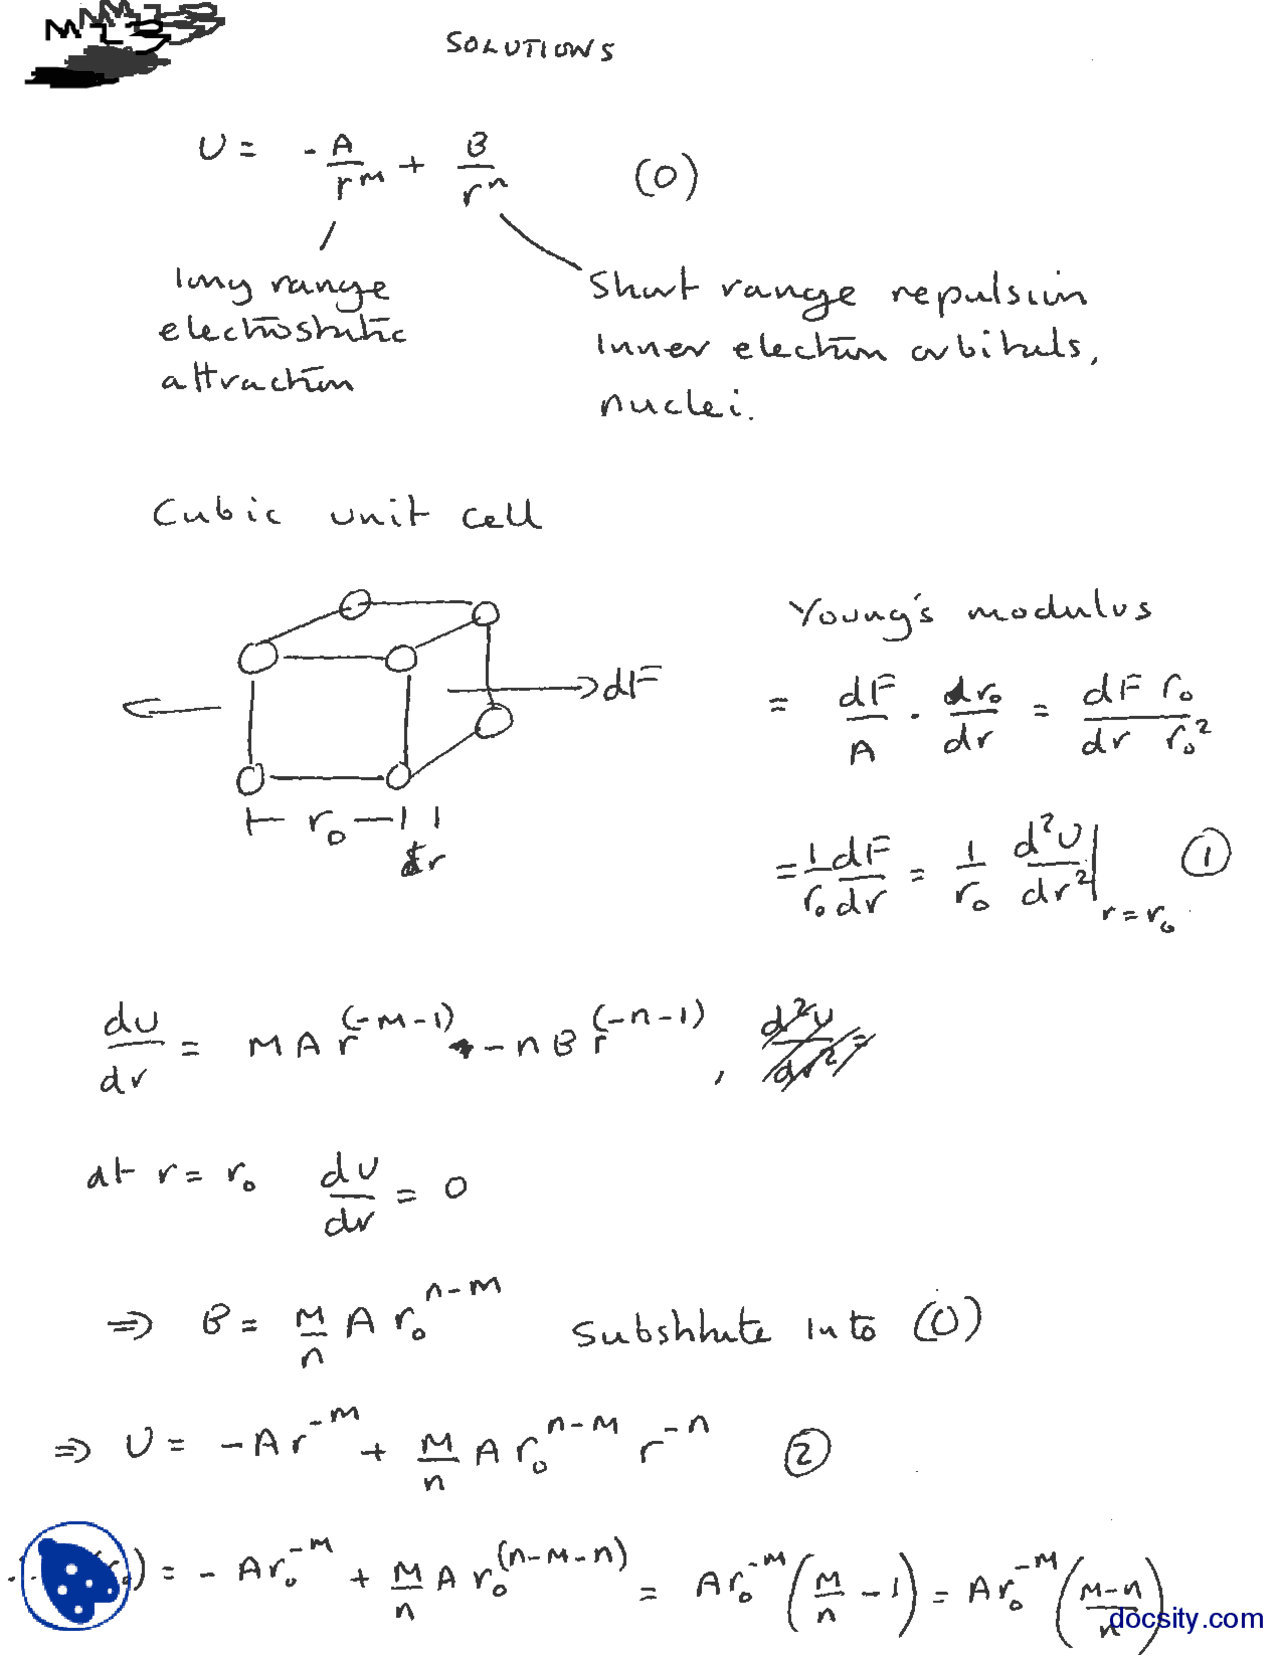 SOLUTIONS
U = -A/r^m + B/r^n (0)
long range
electrostatic
attraction
Short range repulsion
inner electron orbitals,
nuclei.
Cubic unit cell
dF
r₀
dr
Young's modulus
= dF/A · dr₀/dr = dF r₀/dr r₀²
= 1/r₀ dF/dr = 1/r₀ d²U/dr²|r=r₀ ①
dU/dr = mAr^(-m-1) - nBr^(-n-1), d²U/dr² =
at r = r₀ dU/dr = 0
⇒ B = m/n A r₀^n-m Substitute into (0)
⇒ U = -Ar^-m + m/n A r₀^n-m r^-n ②
r₀) = -Ar₀^-m + m/n A r₀^(n-m-n) = Ar₀^-m (m/n - 1) = Ar₀^-m (m-n/n)
docsity.com